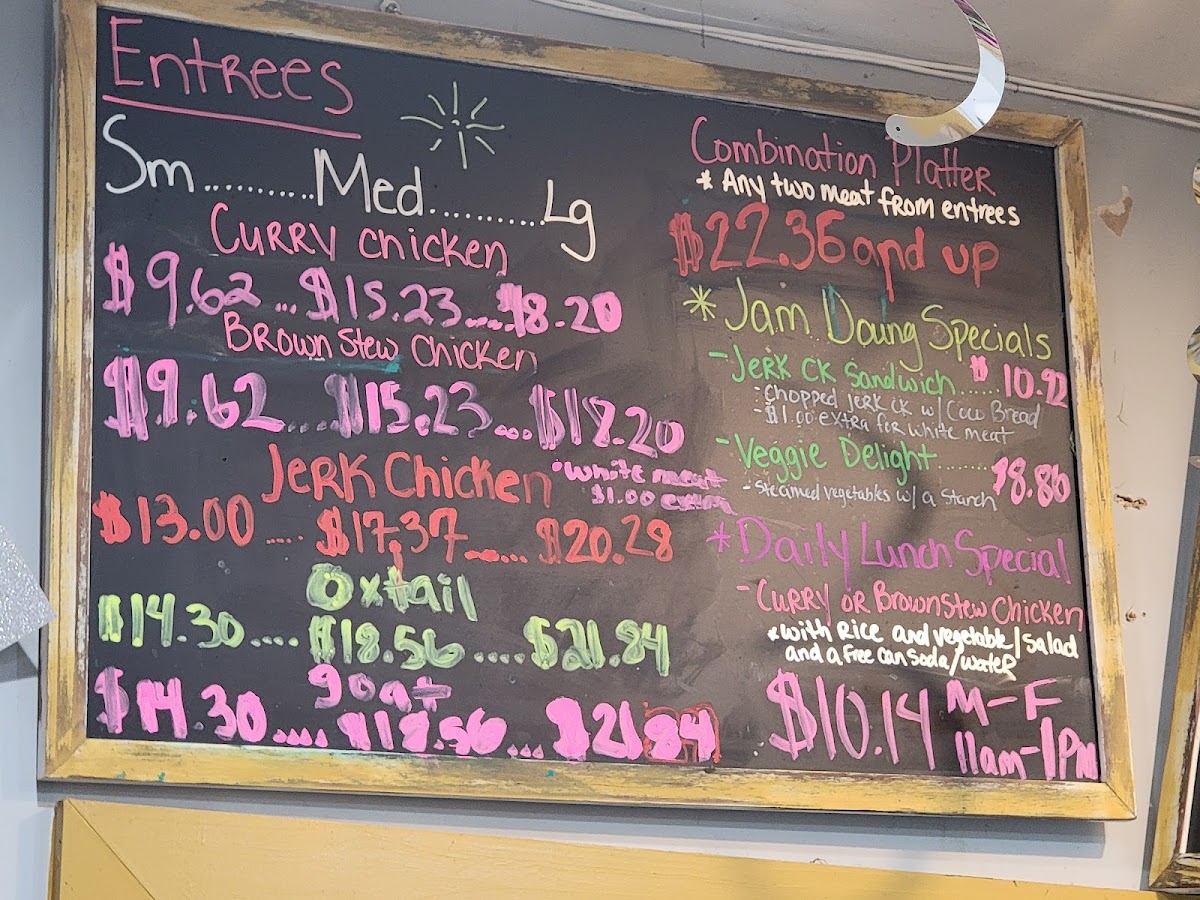 Entrees
Sm.........Med.........Lg
Curry chicken
$9.62...$15.23....$18.20
Brown Stew chicken
$9.62....$15.23...$18.20
Jerk Chicken
•white meat
$1.00 extra
$13.00.....$17.37......$20.28
Oxtail
$14.30....$18.56.....$21.84
goat
$14.30....$18.56...$21.84
Combination Platter
* Any two meat from entrees
$22.36 and up
* Jam Doung Specials
- Jerk CK Sandwich.....$10.92
- Chopped Jerk CK w/ Coco Bread
- $1.00 extra for white meat
- Veggie Delight.......$8.86
- steamed vegetables w/ a starch
* Daily Lunch Special
- Curry or Brownstew chicken
* with Rice and vegetable/salad
and a free can soda/water
$10.14 M-F
11am-1pm